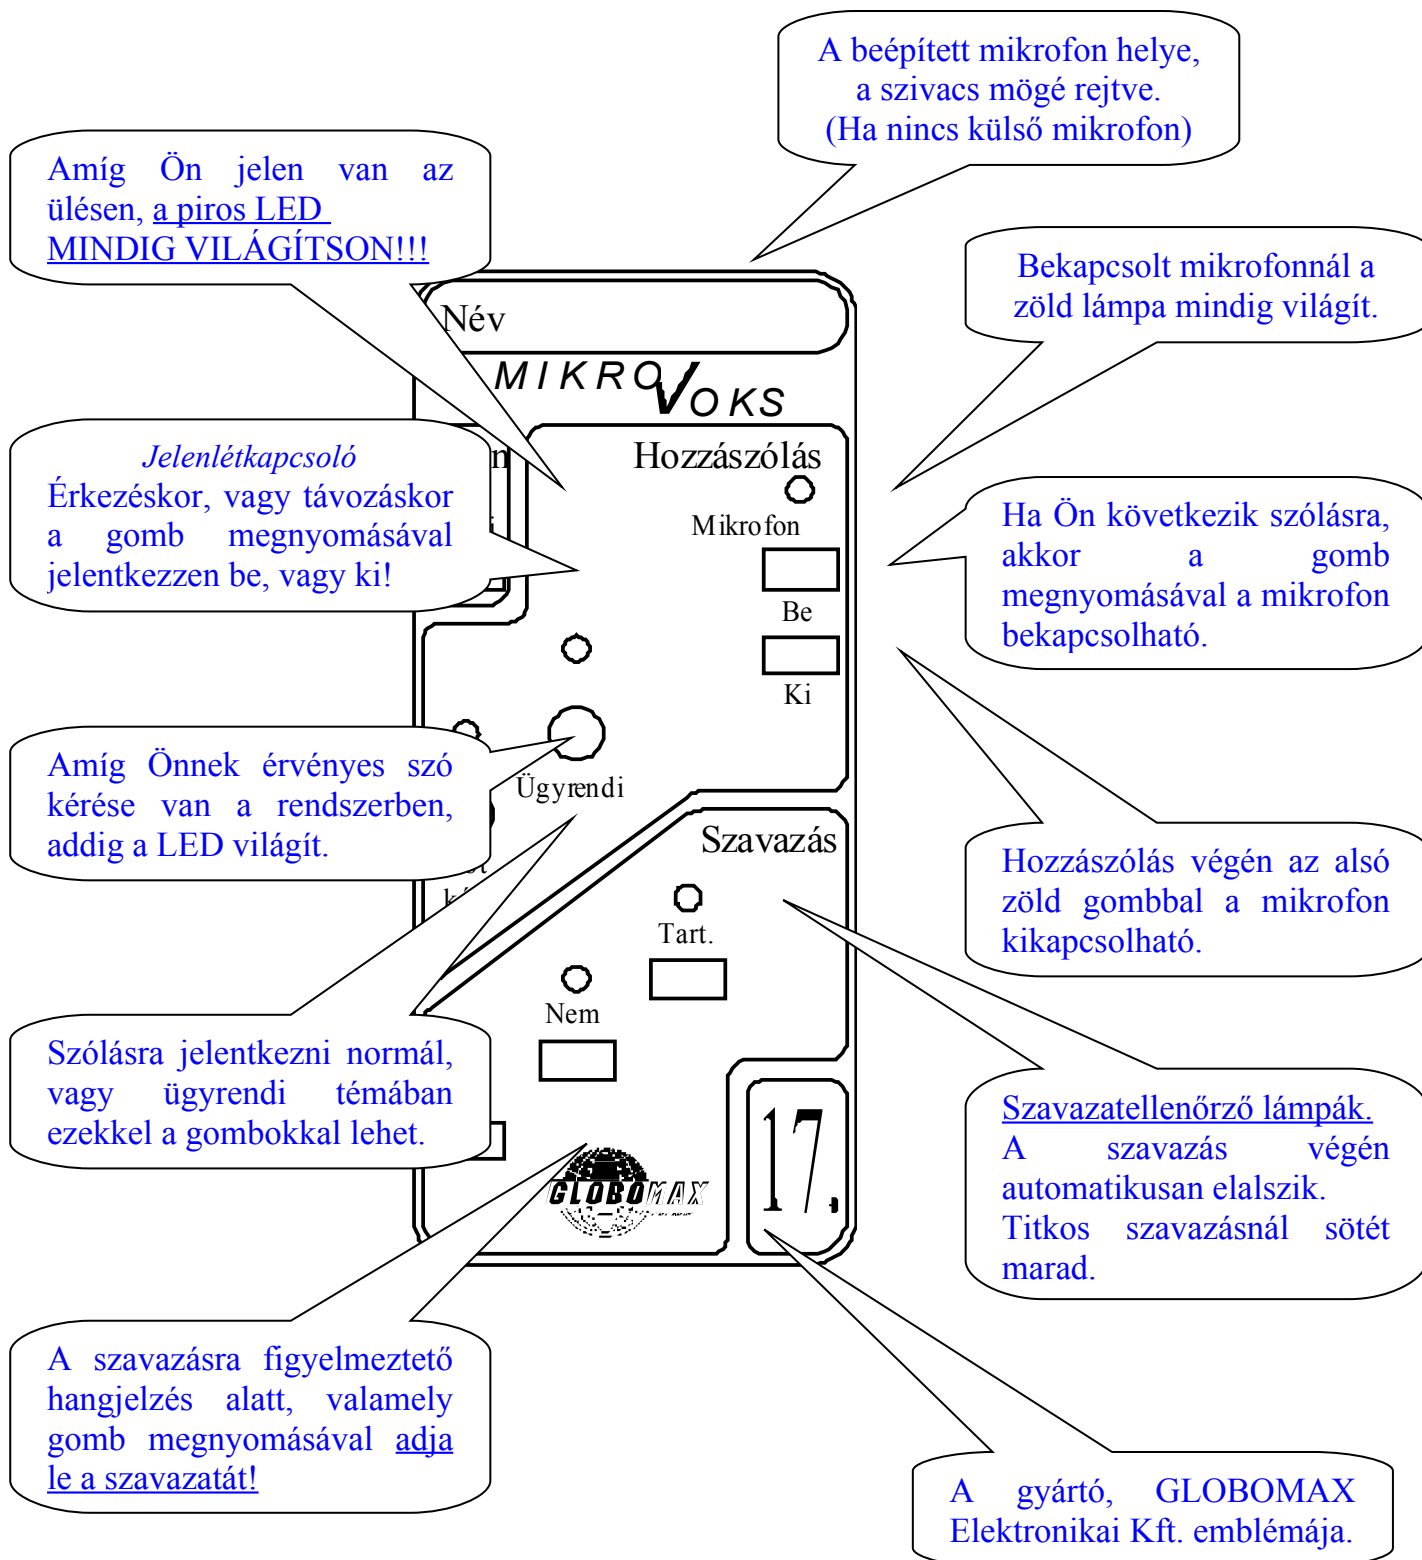 A beépített mikrofon helye,
a szivacs mögé rejtve.
(Ha nincs külső mikrofon)
Amíg Ön jelen van az
ülésen, a piros LED
MINDIG VILÁGÍTSON!!!
Bekapcsolt mikrofonnál a
zöld lámpa mindig világít.
Név
MIKROVOKS
Jelenlétkapcsoló
Érkezéskor, vagy távozáskor
a gomb megnyomásával
jelentkezzen be, vagy ki!
Hozzászólás
Mikrofon
Be
Ki
Ha Ön következik szólásra,
akkor a gomb
megnyomásával a mikrofon
bekapcsolható.
Amíg Önnek érvényes szó
kérése van a rendszerben,
addig a LED világít.
Ügyrendi
Szavazás
Tart.
Nem
Hozzászólás végén az alsó
zöld gombbal a mikrofon
kikapcsolható.
Szólásra jelentkezni normál,
vagy ügyrendi témában
ezekkel a gombokkal lehet.
Szavazatellenőrző lámpák.
A szavazás végén
automatikusan elalszik.
Titkos szavazásnál sötét
marad.
17.
GLOBOMAX
A szavazásra figyelmeztető
hangjelzés alatt, valamely
gomb megnyomásával adja
le a szavazatát!
A gyártó, GLOBOMAX
Elektronikai Kft. emblémája.